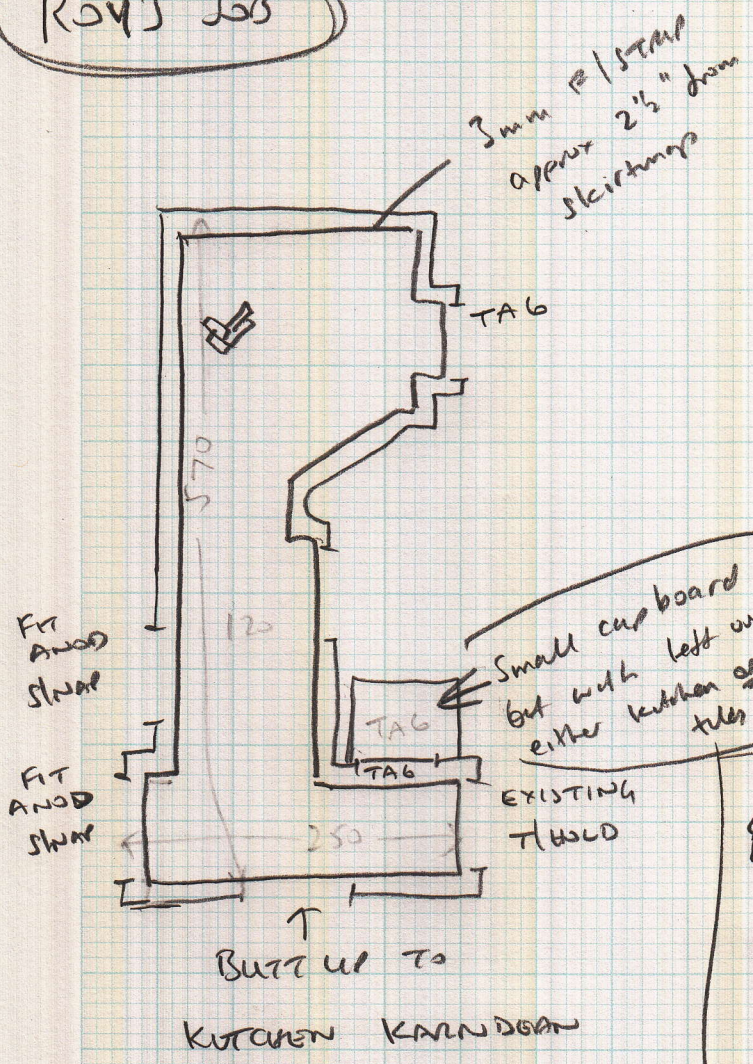 ROY'S JOB
3mm F/STRIP
approx 2½" from
skirtings
TAG
570
120
FIT
ANOD
S/NAP
Small cupboard
but with left ov
either kitchen or
tiles
TAG
TAG
FIT
ANOD
S/NAP
EXISTING
T/HOLD
250
BUTT UP TO
KITCHEN KARNDEAN